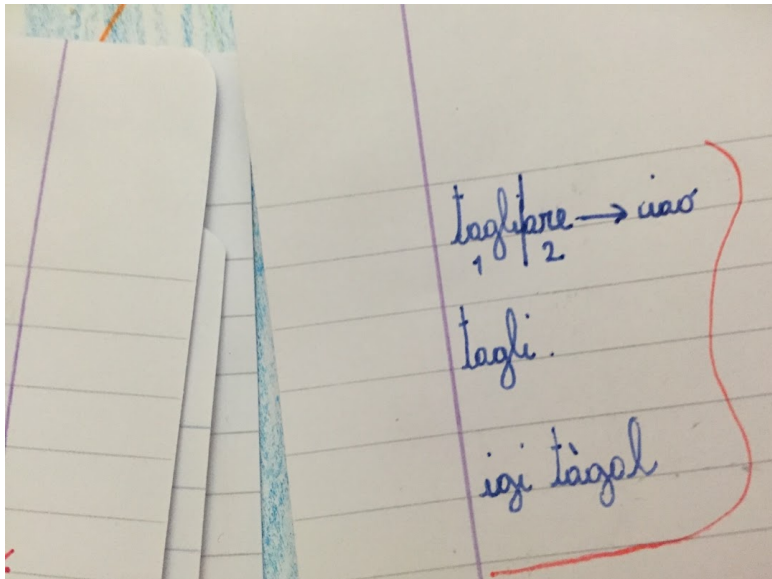 tagli|are → ciao
1 2
tagli.
igi tàgol